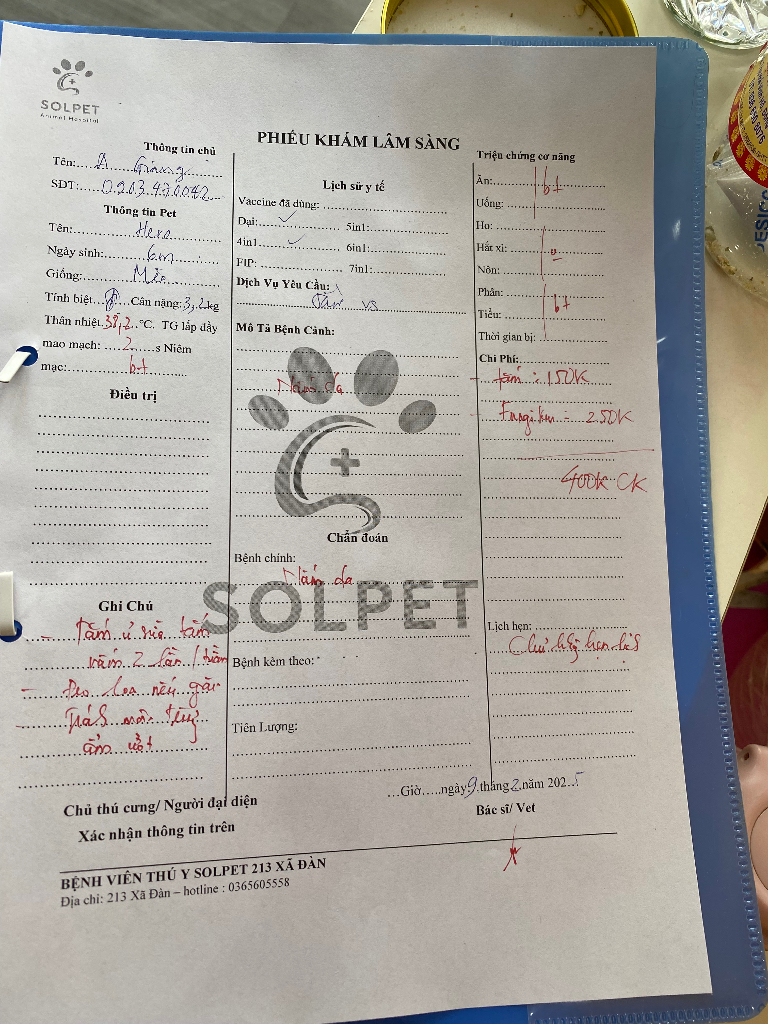 SOLPET
Animal Hospital
PHIẾU KHÁM LÂM SÀNG
Thông tin chủ
Tên: A Giang
SĐT: 0903470042
Thông tin Pet
Tên: Hero
Ngày sinh: 6m
Giống: Mèo
Tính biệt Cân nặng: 3,2kg
Thân nhiệt 38,2 °C. TG lấp đầy
mao mạch: 2 s Niêm
mạc: bt
Điều trị
Ghi Chú
- Tắm ủ sữa tắm
nấm 2 lần / tuần
- Đeo loa nếu gãi
- Tránh môi trường
ẩm ướt
Lịch sử y tế
Vaccine đã dùng:
Dại: ✓ 5in1:
4in1 ✓ 6in1:
FIP: 7in1:
Dịch Vụ Yêu Cầu:
Tắm vs
Mô Tả Bệnh Cảnh:
Nấm da
Chẩn đoán
Bệnh chính:
Nấm da
SOLPET
Bệnh kèm theo:
Tiên Lượng:
Triệu chứng cơ năng
Ăn: bt
Uống:
Ho:
Hắt xì:
Nôn:
Phân: bt
Tiểu:
Thời gian bị:
Chi Phí:
- tắm: 150K
- Fungikur: 250K
400K CK
Lịch hẹn:
...Giờ.....ngày 9 tháng 2 năm 2025
Chủ thú cưng/ Người đại diện
Xác nhận thông tin trên
Bác sĩ/ Vet
BỆNH VIỆN THÚ Y SOLPET 213 XÃ ĐÀN
Địa chỉ: 213 Xã Đàn – hotline : 0365605558